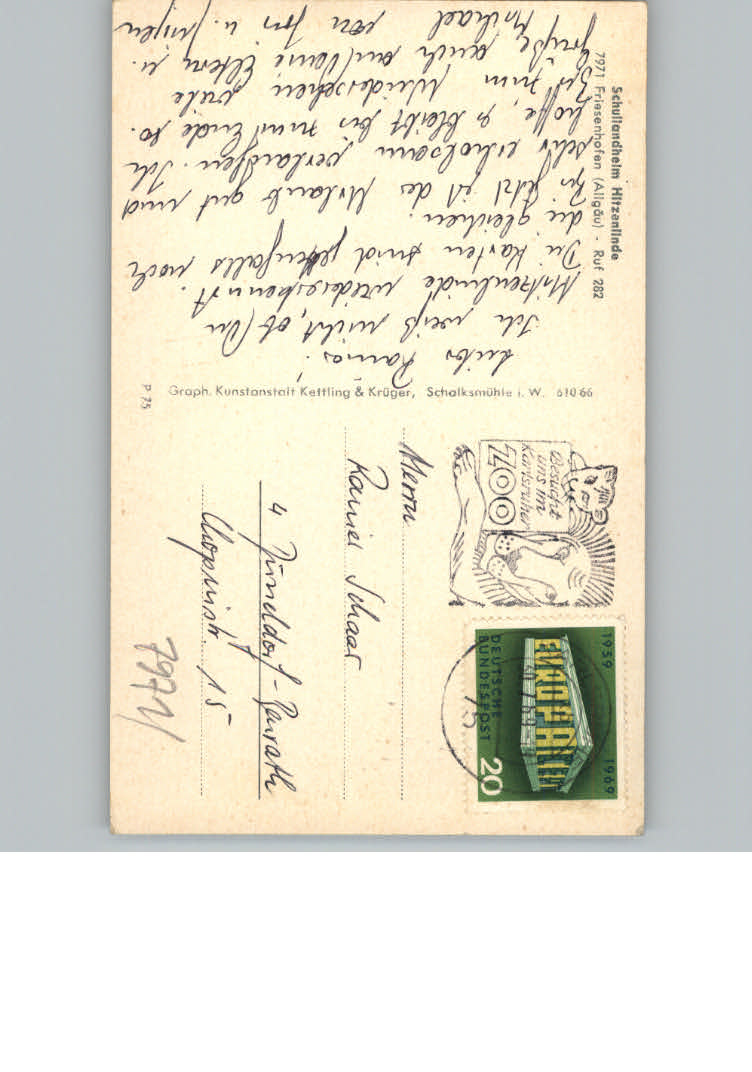 Schullandheim Hitzenlinde
7971 Friesenhofen (Allgäu) · Ruf 282
Lieber Rainer!
Ich weiß nicht, ob Du
Hitzenlinde wiedererkennst.
Die Karten sind jedenfalls noch
die gleichen.
Bis jetzt ist der Urlaub gut und
sehr erholsam verlaufen. Ich
hoffe, es bleibt bis zum Ende so.
Bis zum Wiedersehen viele
Grüße, auch an Deine Eltern u.
Michael von u.
Graph. Kunstanstalt Kettling & Krüger, Schalksmühle i. W. 610 66
P 75
Besucht
uns im
Karlsruher
ZOO
1959
1969
EUROPA CEPT
DEUTSCHE
BUNDESPOST
20
75
Herrn
Rainer Schaar
4 Düsseldorf-Benrath
Chopinstr. 15
7971